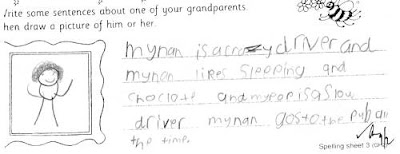 Write some sentences about one of your grandparents
hen draw a picture of him or her.
my nan is a crazy driver and
my nan likes sleeping and
choclote and my pop is a slow
driver my nan gos to the pub all
the time.
Spelling sheet 3 (